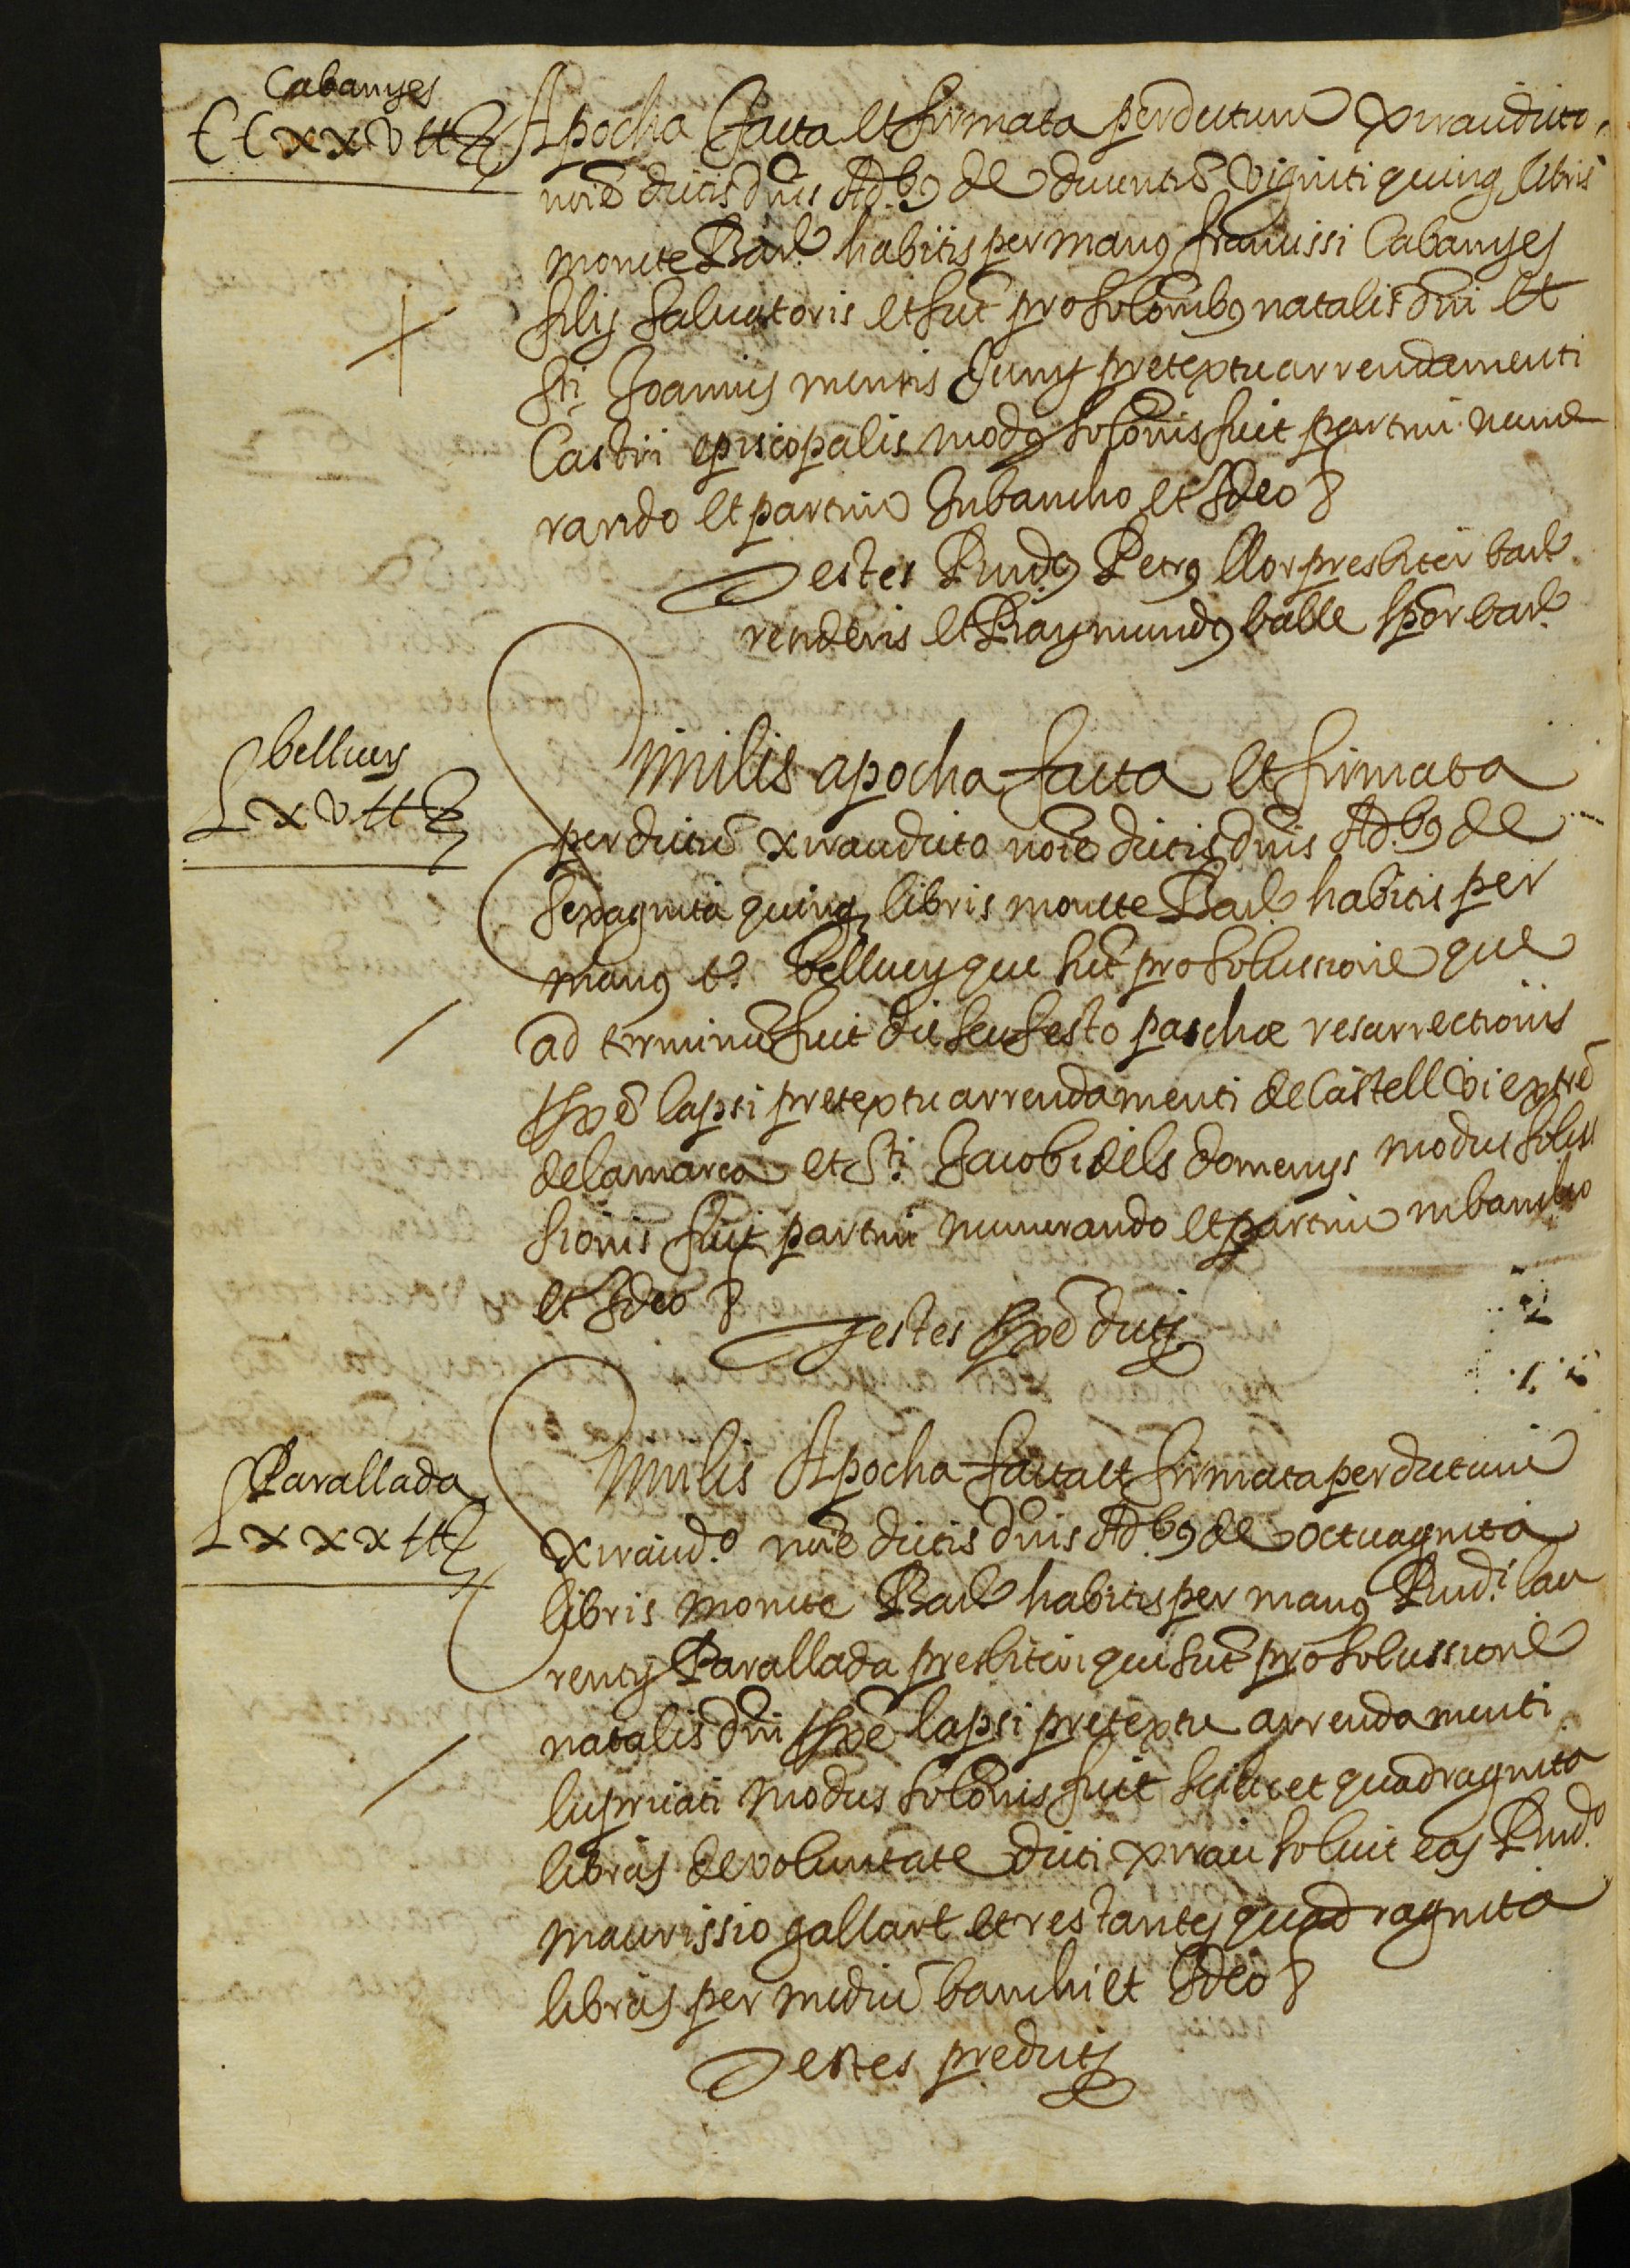 Cabanyes
CCxxv ll
Apocha facta et firmata per dictum Xirau dicto
noiē dictis dnis Adb9 de ducentis viginti quinq libris
monete Barẽ habitis per manq franᶜissi Cabanyes
filij Saluatoris et sut pro solonibq natalis dni et
Sti Joannis mensis Juny pretextu arrendamenti
Castri episcopalis modq solonis fuit partim nume
rando et partim In bancho et Ideo &
Testes Rndq Petrq llor presbiter barẽ
rendens et Raymundq balle scptor barẽ
bellvey
Lxv ll
Similis apocha facta et firmata
per dictū Xirau dicto noiē dictis dnis Adbq de
sexaginta quinq libris monete Barẽ habitis per
manq bellvey que sut pro solussione que
ad terminū fuit die seu festo paschæ resurrectionis
ppē lapsi pretextu arrendamenti de Castellvi extrē
de la marca et Sti Jacobi dels domenys modus solus
sionis fuit partim numerando et partim in bancho
et Ideo &
Testes ppē dicti
Parallada
Lxxx ll
Similis Apocha facta et firmata per dictum
Xirau do noiē dictis dnis Adbq de octuaginta
libris monete Barẽ habitis per manq Rndi lau
rentij Parallada presbiteri qui sut pro solussione
natalis dni ppē lapsi pretextu arrendamenti
lupricati modus solonis fuit scilicet quadraginta
libras de voluntate dicti Xirau soluit eas Rndo
maurissio gallart et restantes quadraginta
libras per mediū banchi et Ideo &
Testes predicti